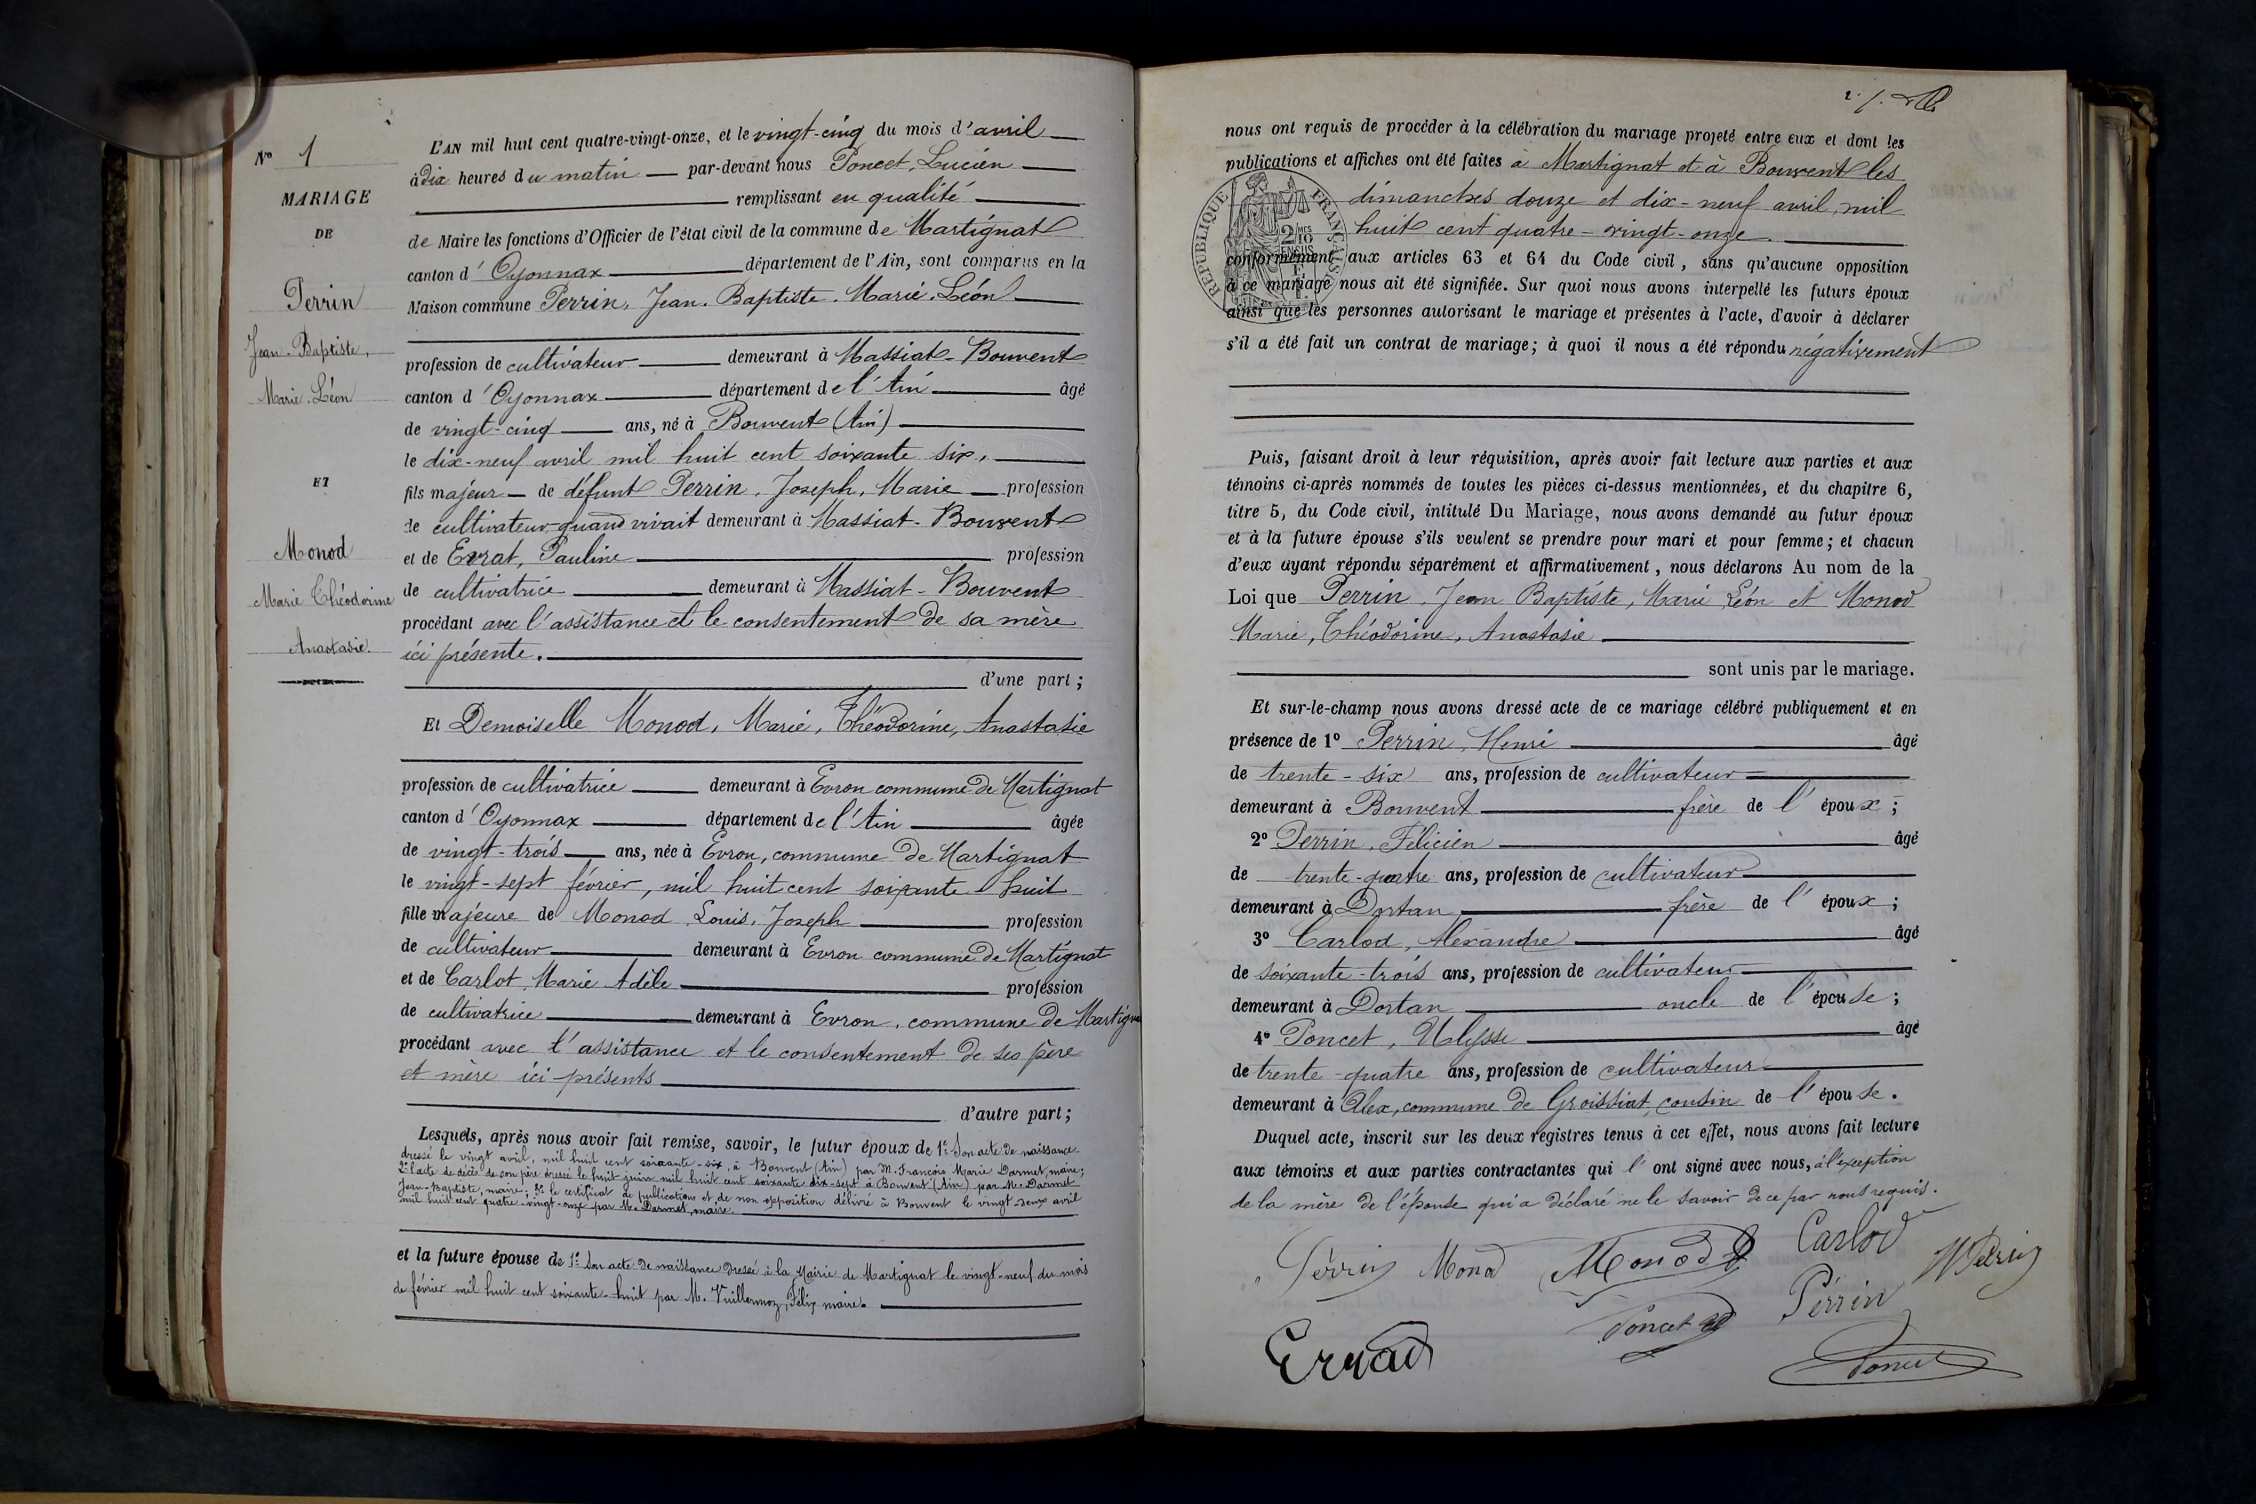 N° 1
MARIAGE
DE
Perrin
Jean. Baptiste,
Marie. Léon
ET
Monod
Marie Théodorine
Anastasie.
L'AN mil huit cent quatre-vingt-onze, et le vingt-cinq du mois d'avril
à dix heures du matin par-devant nous Poncet, Lucien
remplissant en qualité
de Maire les fonctions d'Officier de l'état civil de la commune de Martignat
canton d'Oyonnax département de l'Ain, sont comparus en la
Maison commune Perrin, Jean. Baptiste. Marie. Léon
profession de cultivateur demeurant à Massiat-Bouvent
canton d'Oyonnax département de l'Ain âgé
de vingt-cinq ans, né à Bouvent (Ain)
le dix-neuf avril mil huit cent soixante six,
fils majeur de défunt Perrin, Joseph, Marie profession
de cultivateur quand vivait demeurant à Massiat-Bouvent
et de Evrat, Pauline profession
de cultivatrice demeurant à Massiat-Bouvent
procédant avec l'assistance et le consentement de sa mère
ici présente.
d'une part;
Et Demoiselle Monod, Marie, Théodorine, Anastasie
profession de cultivatrice demeurant à Evron commune de Martignat
canton d'Oyonnax département de l'Ain âgée
de vingt-trois ans, née à Evron, commune de Martignat
le vingt-sept février, mil huit cent soixante huit
fille majeure de Monod Louis, Joseph profession
de cultivateur demeurant à Evron commune de Martignat
et de Carlot, Marie Adèle profession
de cultivatrice demeurant à Evron, commune de Martign
procédant avec l'assistance et le consentement de ses père
et mère ici présents
d'autre part;
Lesquels, après nous avoir fait remise, savoir, le futur époux de 1° Son acte de naissance
dressé le vingt avril, mil huit cent soixante-six, à Bouvent (Ain) par M. François Marie Darmet, maire;
2° l'acte de décès de son père dressé le huit juin mil huit cent soixante dix-sept à Bouvent (Ain) par M. Darmet
Jean-Baptiste, maire; 3° le certificat de publications et de non opposition délivré à Bouvent le vingt-deux avril
mil huit cent quatre-vingt-onze par M. Darmet, maire.
et la future épouse de 1° Son acte de naissance dressé à la Mairie de Martignat le vingt-neuf du mois
de février mil huit cent soixante-huit par M. Vuillermoz, Félix maire.
nous ont requis de procéder à la célébration du mariage projeté entre eux et dont les
publications et affiches ont été faites à Martignat et à Bouvent les
dimanches douze et dix-neuf avril, mil
huit cent quatre-vingt-onze.
RÉPUBLIQUE FRANÇAISE
conformément aux articles 63 et 64 du Code civil, sans qu'aucune opposition
à ce mariage nous ait été signifiée. Sur quoi nous avons interpellé les futurs époux
ainsi que les personnes autorisant le mariage et présentes à l'acte, d'avoir à déclarer
s'il a été fait un contrat de mariage; à quoi il nous a été répondu négativement
Puis, faisant droit à leur réquisition, après avoir fait lecture aux parties et aux
témoins ci-après nommés de toutes les pièces ci-dessus mentionnées, et du chapitre 6,
titre 5, du Code civil, intitulé Du Mariage, nous avons demandé au futur époux
et à la future épouse s'ils veulent se prendre pour mari et pour femme; et chacun
d'eux ayant répondu séparément et affirmativement, nous déclarons Au nom de la
Loi que Perrin, Jean Baptiste, Marie Léon et Monod
Marie, Théodorine, Anastasie
sont unis par le mariage.
Et sur-le-champ nous avons dressé acte de ce mariage célébré publiquement et en
présence de 1° Perrin, Henri âgé
de trente-six ans, profession de cultivateur
demeurant à Bouvent frère de l'époux;
2° Perrin, Félicien âgé
de trente-quatre ans, profession de cultivateur
demeurant à Dortan frère de l'époux;
3° Carlod, Alexandre âgé
de soixante-trois ans, profession de cultivateur
demeurant à Dortan oncle de l'épouse;
4° Poncet, Ulysse âgé
de trente-quatre ans, profession de cultivateur
demeurant à Alex, commune de Groissiat, cousin de l'épouse.
Duquel acte, inscrit sur les deux registres tenus à cet effet, nous avons fait lecture
aux témoins et aux parties contractantes qui l'ont signé avec nous, à l'exception
de la mère de l'épouse qui a déclaré ne le savoir de ce par nous requis.
Perrin Monod Monod Carlod H Perrin
Poncet Perrin
Evrad Poncet